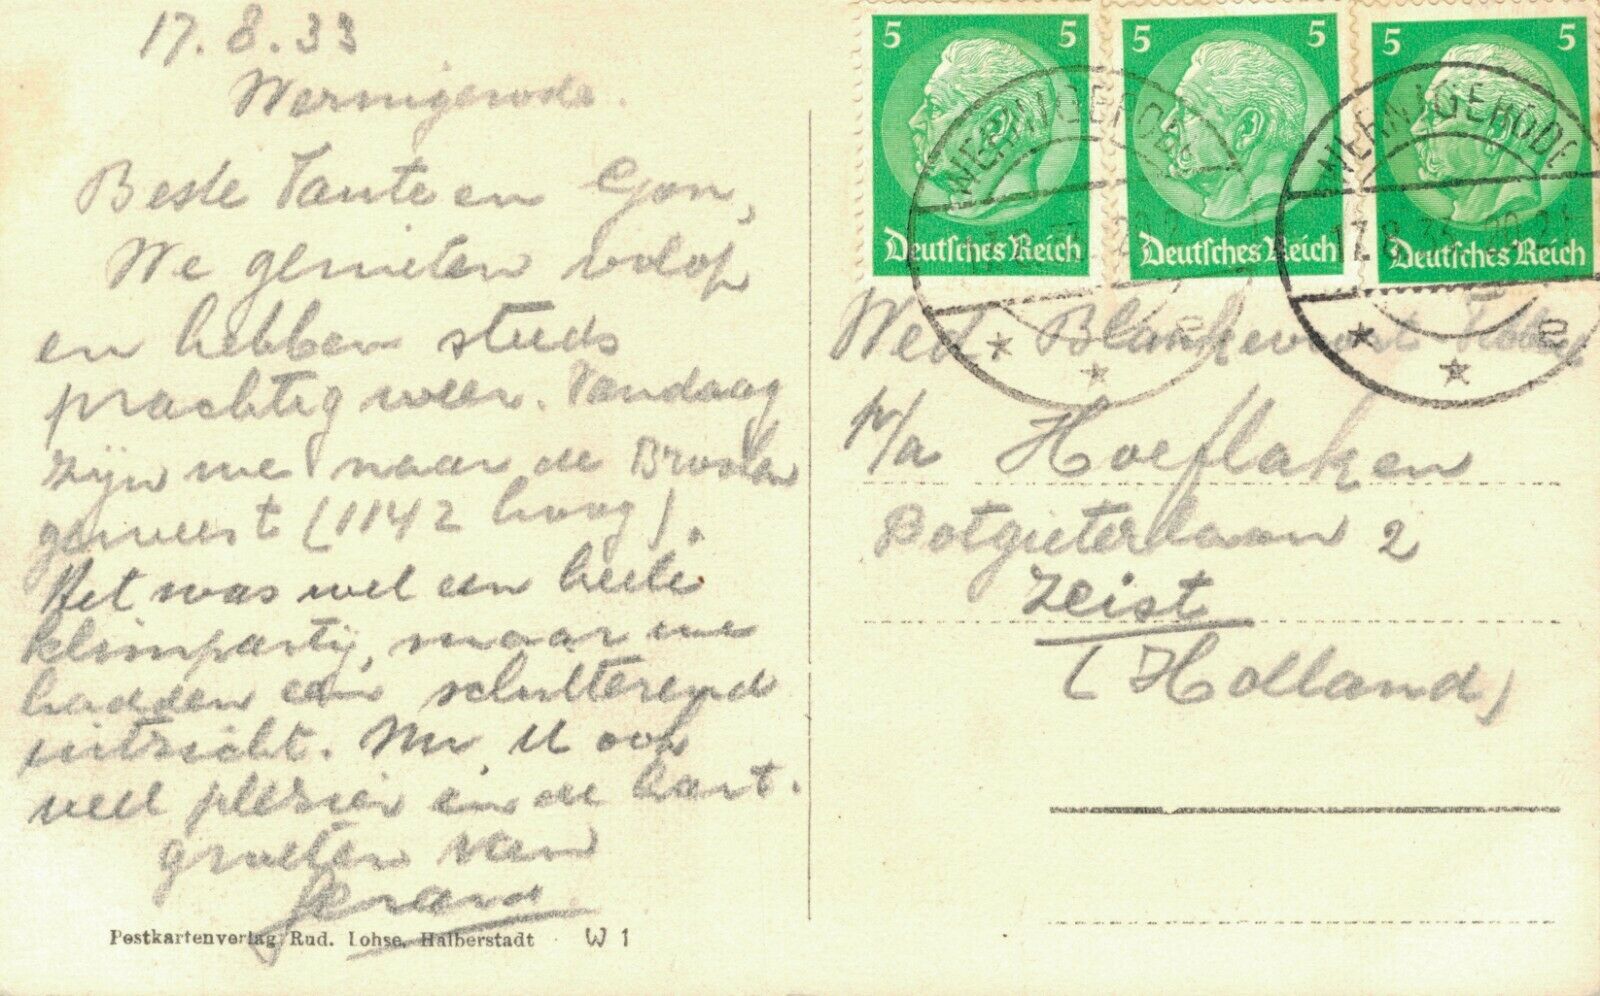 17.8.33
Wernigerode.
Beste Tante en Gon,
We genieten volop
en hebben steeds
prachtig weer. Vandaag
zijn we naar de Brocken
geweest (1142 hoog).
Het was wel een heele
klimpartij, maar we
hadden een schitterend
uitzicht. Nu U ook
veel plezier en de hart.
groeten van
Gerard
Postkartenverlag Rud. Lohse, Halberstadt W 1
5 5 5 5 5 5
Deutsches Reich Deutsches Reich Deutsches Reich
WERNIGERODE WERNIGERODE
17.8.33 20-21
* * e
* * e
Wed. Blankevoort
p/a Hoeflaken
Potgieterlaan 2
Zeist
(Holland)